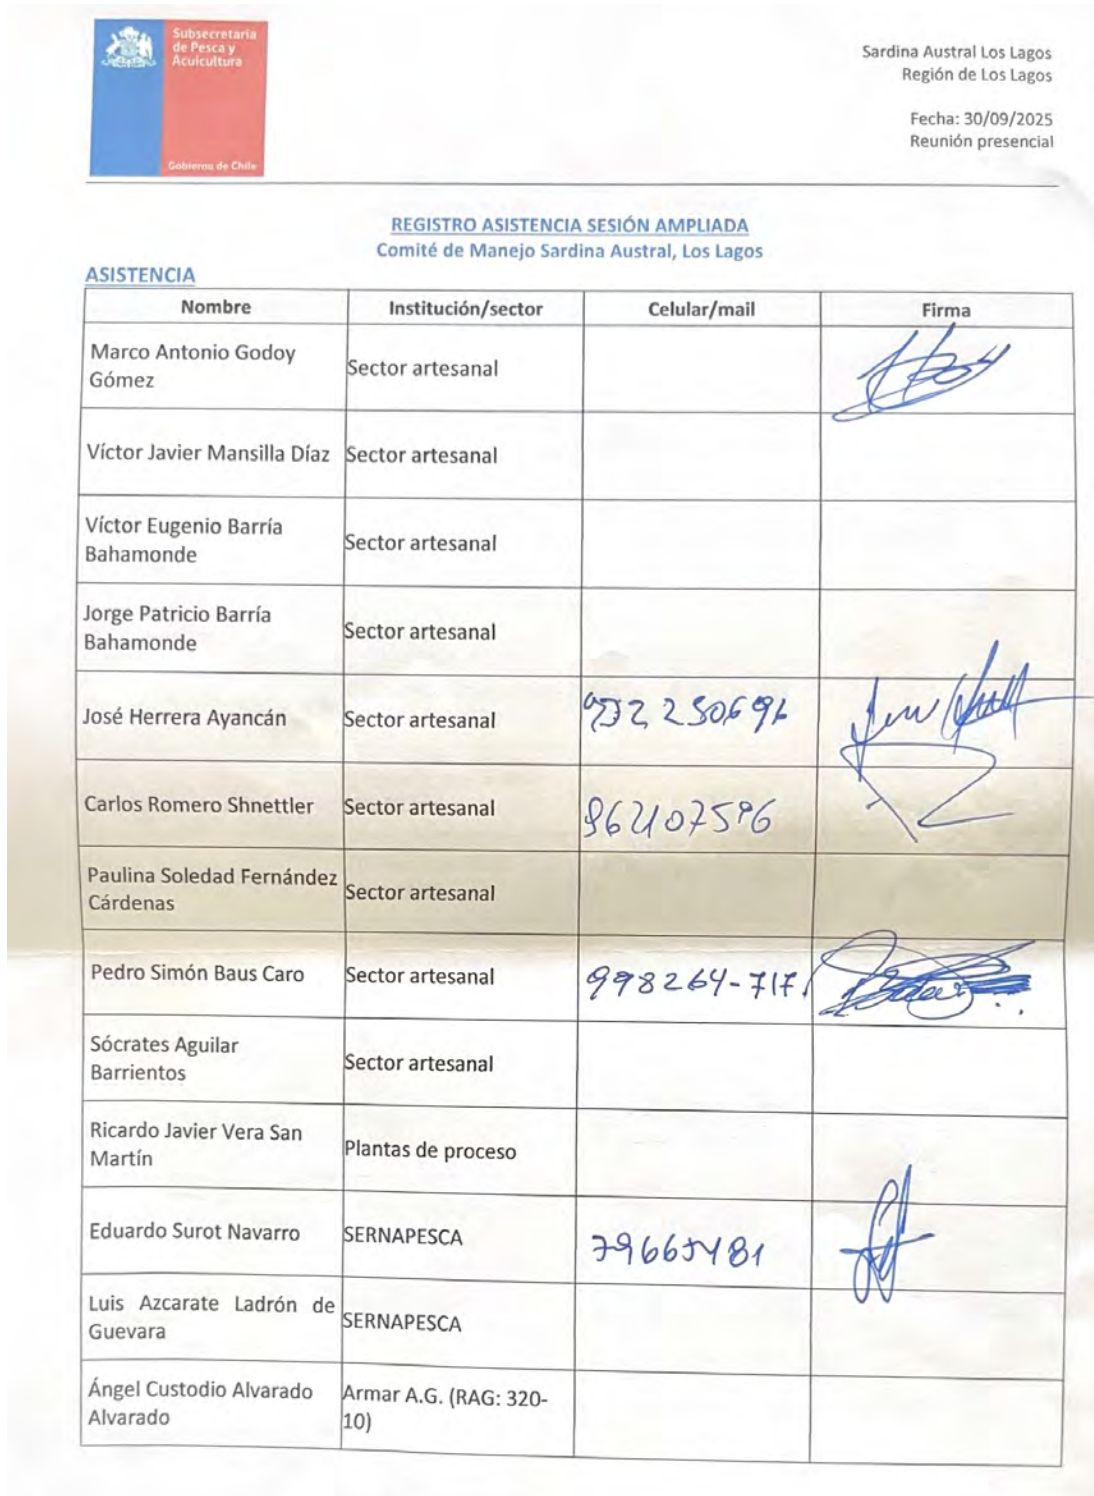 Subsecretaría
de Pesca y
Acuicultura
Gobierno de Chile
Sardina Austral Los Lagos
Región de Los Lagos
Fecha: 30/09/2025
Reunión presencial
REGISTRO ASISTENCIA SESIÓN AMPLIADA
Comité de Manejo Sardina Austral, Los Lagos
ASISTENCIA
Nombre Institución/sector Celular/mail Firma
Marco Antonio Godoy
Gómez
Sector artesanal
Víctor Javier Mansilla Díaz Sector artesanal
Víctor Eugenio Barría
Bahamonde
Sector artesanal
Jorge Patricio Barría
Bahamonde
Sector artesanal
José Herrera Ayancán Sector artesanal
Carlos Romero Shnettler Sector artesanal 962107596
Paulina Soledad Fernández
Cárdenas
Sector artesanal
Pedro Simón Baus Caro Sector artesanal 998264-717
Sócrates Aguilar
Barrientos
Sector artesanal
Ricardo Javier Vera San
Martín
Plantas de proceso
Eduardo Surot Navarro SERNAPESCA 79665481
Luis Azcarate Ladrón de
Guevara
SERNAPESCA
Ángel Custodio Alvarado
Alvarado
Armar A.G. (RAG: 320-
10)